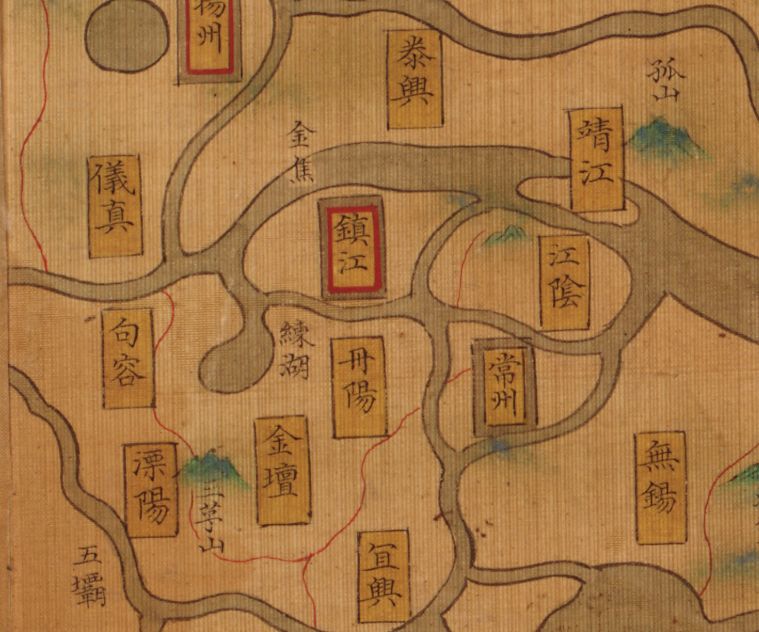 揚州
泰興
孤山
靖江
金焦
儀真
鎮江
江陰
句容
練湖
丹陽
常州
金壇
溧陽
三茅山
無錫
五壩
宜興